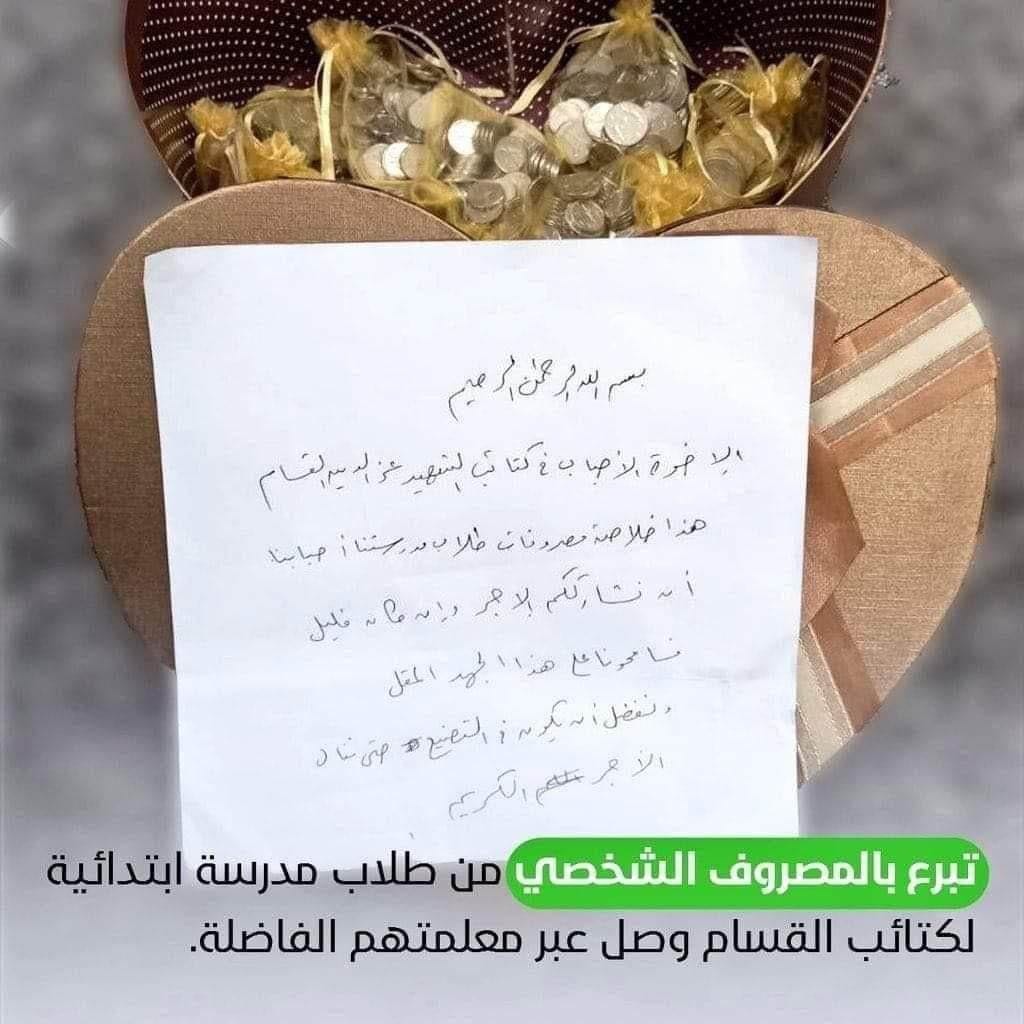 بسم الله الرحمن الرحيم
الاخوة الأحباب في كتائب الشهيد عز الدين القسام
هذا خلاصة مصروفات طلاب مدرستنا أحبابنا
أن نشارككم الاجر وإن كان قليل
فسامحونا على هذا الجهد المقل
ونفضل أن يكون في التصنيع حتى ننال
الأجر الكريم
تبرع بالمصروف الشخصي من طلاب مدرسة ابتدائية
لكتائب القسام وصل عبر معلمتهم الفاضلة.